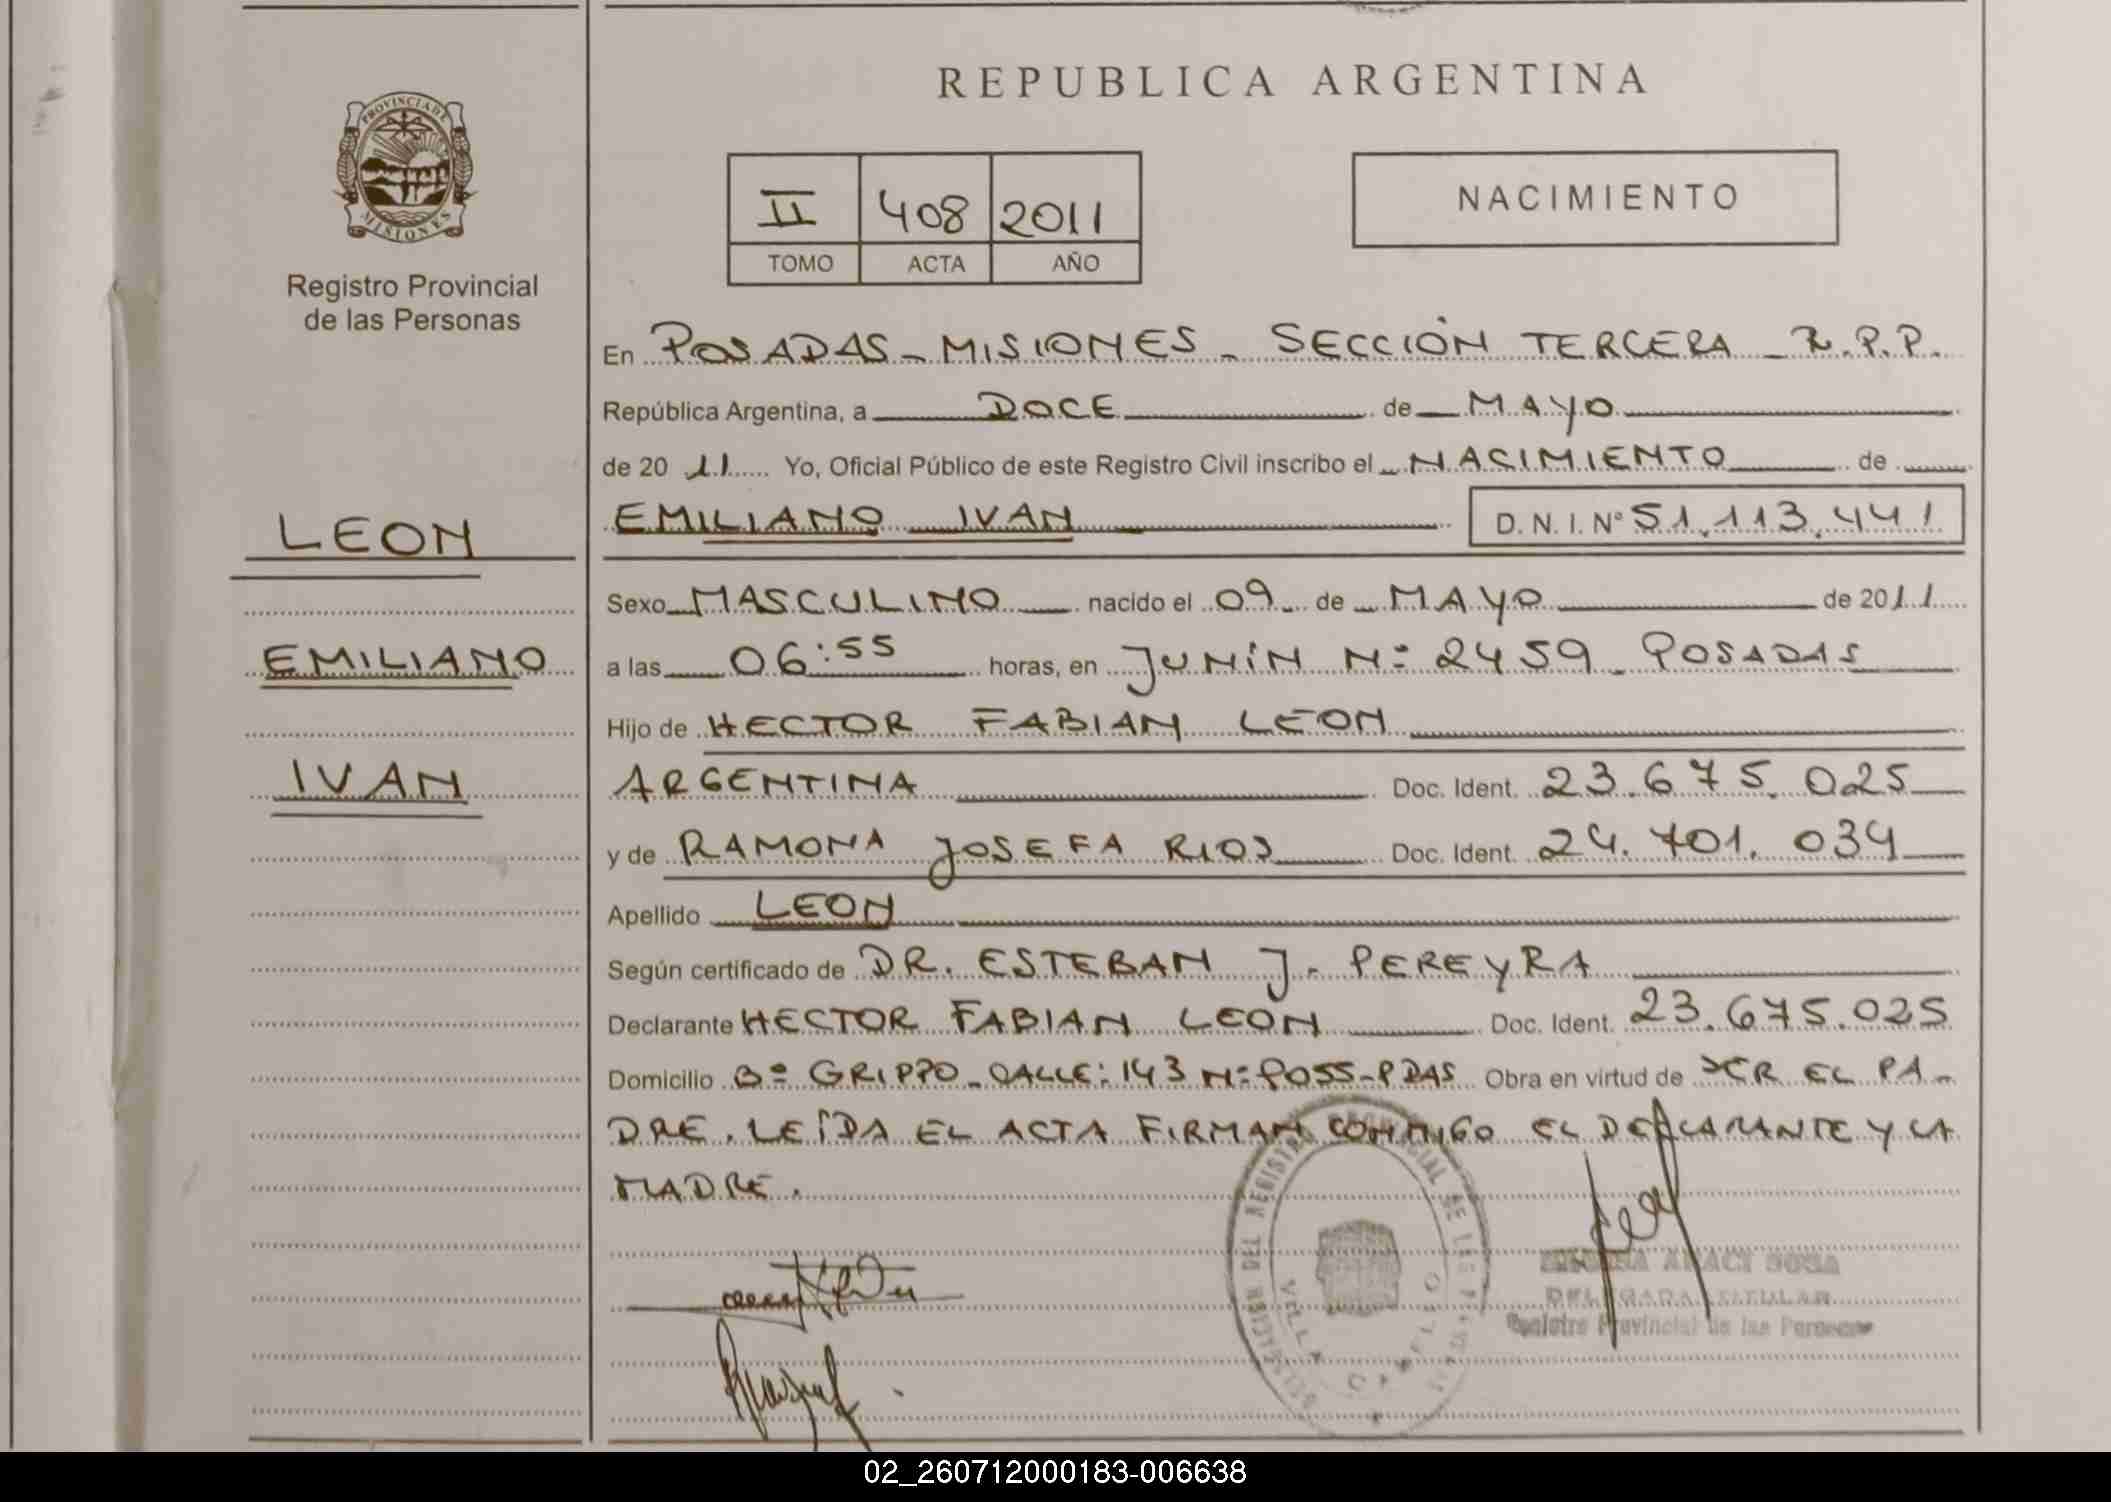 REPUBLICA ARGENTINA
PROVINCIA DE
MISIONES
Registro Provincial
de las Personas
II 408 2011
TOMO ACTA AÑO
NACIMIENTO
En POSADAS - MISIONES - SECCIÓN TERCERA - R.P.P.
República Argentina, a DOCE de MAYO
de 20 11 Yo, Oficial Público de este Registro Civil inscribo el NACIMIENTO de
LEON
EMILIANO IVAN D. N. I. Nº 51.113.441
Sexo MASCULINO nacido el 09 de MAYO de 2011
EMILIANO
a las 06:55 horas, en JUNÍN Nº 2459 - POSADAS
Hijo de HECTOR FABIAN LEON
IVAN
ARGENTINA Doc. Ident. 23.675.025
y de RAMONA JOSEFA RIOS Doc. Ident. 24.701.034
Apellido LEON
Según certificado de DR. ESTEBAN J. PEREYRA
Declarante HECTOR FABIAN LEON Doc. Ident. 23.675.025
Domicilio Bº GRIPPO - CALLE: 143 Nº 9055 - PDAS Obra en virtud de SER EL PA-
DRE. LEÍDA EL ACTA FIRMAN CONMIGO EL DECLARANTE Y LA
MADRE.
DEL REGISTRO PROVINCIAL DE LAS
VILLA CABELLO
ARACI SOSA
DELEGADA TITULAR
Registro Provincial de las Personas
02_260712000183-006638